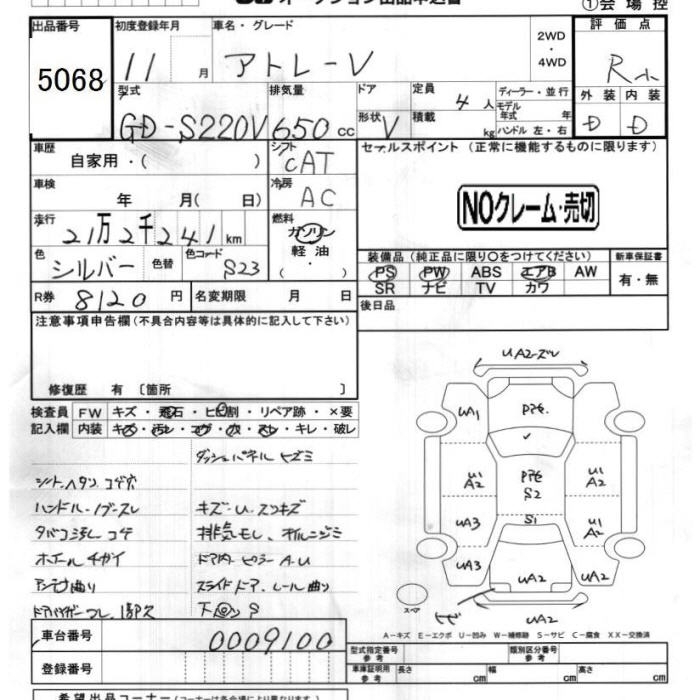 オークション出品申込書
①会場控
出品番号
5068
初度登録年月
11 月
車名・グレード
アトレーV
2WD
・
4WD
評価点
R
外装 内装
D D
型式
GD-S220V
排気量
650 cc
ドア
形状 V
定員
4 人
積載
kg
ディーラー・並行
モデル
年式 年
ハンドル 左・右
車歴
自家用・( )
シフト
CAT
セールスポイント (正常に機能するものに限ります)
車検
年 月( 日)
冷房
AC
NOクレーム・売切
走行
21万2千241 km
燃料
ガソリン
軽油
( ・ )
色
シルバー
色替
色コード
S23
装備品 (純正品に限り○をつけてください)
PS PW ABS エアB AW
SR ナビ TV カワ
新車保証書
有・無
R券
8120 円
名変期限 月 日
後日品
注意事項申告欄 (不具合内容等は具体的に記入して下さい)
修復歴 有 〔箇所 〕
検査員
記入欄
FW キズ・飛石・ヒビ割・リペア跡・×要
内装 キズ・汚レ・コゲ・穴・スレ・キレ・破レ
ダッシュパネル ヒズミ
シートヘタリ コゲ穴
ハンドル・ノブスレ
キズ・U.スリキズ
タバコ汚レ コゲ
排気モレ、オイルニジミ
ホイールチガイ
ドア内ピラー A.U
スライドドア、レール曲り
下回りS
UA2ズレ
UA1
U1
A2
U1
A2
S2
S1
UA3
U1
A2
UA3
UA2
UA2
ヒビ
UA2
スペア
A-キズ E-エクボ U-凹み W-補修跡 S-サビ C-腐食 XX-交換済
車台番号
0009100
登録番号
型式指定番号
参考
類別区分番号
参考
車庫証明用
参考
長さ cm 幅 cm 高さ cm
希望出品コーナー (コーナーは各会場により異なります)